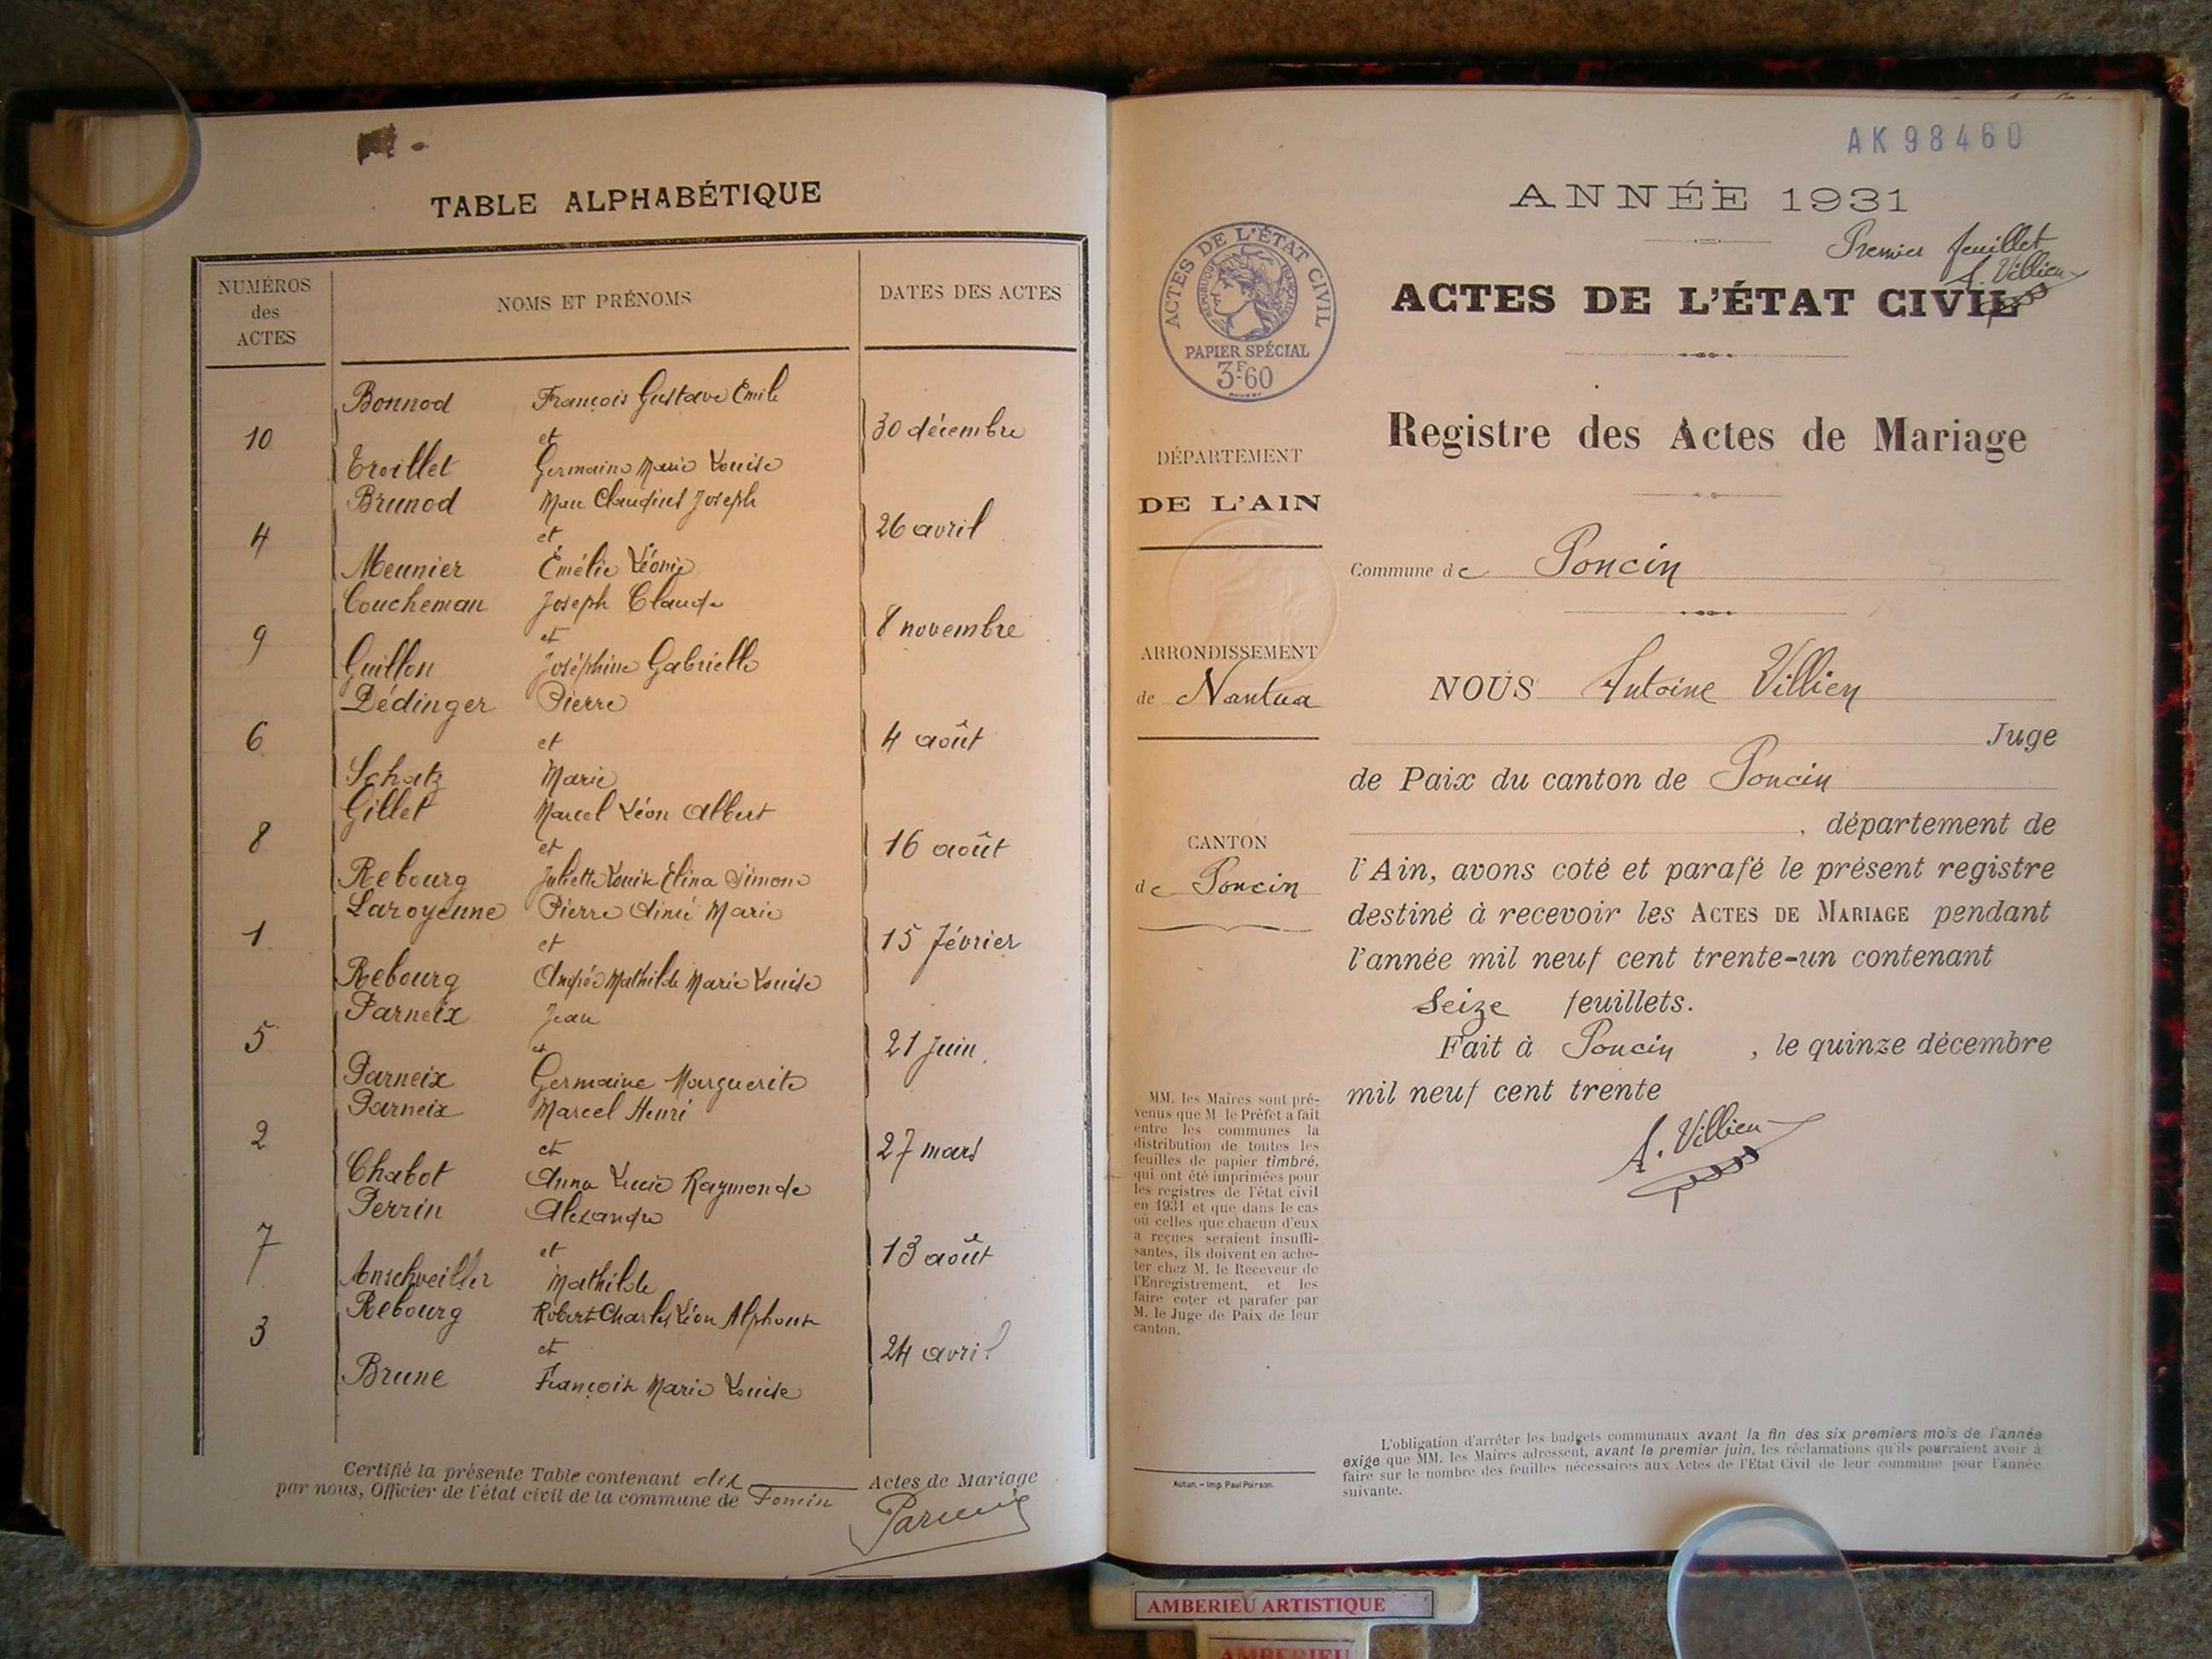 TABLE ALPHABÉTIQUE
NUMÉROS
des
ACTES
NOMS ET PRÉNOMS
DATES DES ACTES
Bonnod François Gustave Émile
10 et 30 décembre
Troillet Germaine Marie Louise
Brunod Marc Claudius Joseph
4 et 26 avril
Meunier Émélie Léonie
Coucheman Joseph Claude
9 et 8 novembre
Guillon Joséphine Gabrielle
Dédinger Pierre
6 et 4 août
Schatz Marie
Gillet Marcel Léon Albert
8 et 16 août
Rebourg Juliette Louise Élina Simone
Laroyenne Pierre Aimé Marie
1 et 15 février
Rebourg Andrée Mathilde Marie Louise
Parneix Jean
5 et 21 juin
Parneix Germaine Marguerite
Parneix Marcel Henri
2 et 27 mars
Chabot Anna Lucie Raymonde
Perrin Alexandre
7 et 13 août
Anschveiller Mathilde
Rebourg Robert Charles Léon Alphonse
3 et 24 avril
Brune Françoise Marie Louise
Certifié la présente Table contenant dix Actes de Mariage
par nous, Officier de l'état civil de la commune de Poncin
AK 98460
ANNÉE 1931
Premier feuillet
A. Villien
ACTES DE L'ÉTAT CIVIL
ACTES DE L'ÉTAT CIVIL
RÉPUBLIQUE FRANÇAISE
PAPIER SPÉCIAL
3F60
Registre des Actes de Mariage
DÉPARTEMENT
DE L'AIN
Commune de Poncin
ARRONDISSEMENT
de Nantua
NOUS Antoine Villien
Juge
de Paix du canton de Poncin
, département de
CANTON
de Poncin
l'Ain, avons coté et parafé le présent registre
destiné à recevoir les ACTES DE MARIAGE pendant
l'année mil neuf cent trente-un contenant
Seize feuillets.
Fait à Poncin , le quinze décembre
mil neuf cent trente
A. Villien
MM. les Maires sont pré-
venus que M le Préfet a fait
entre les communes la
distribution de toutes les
feuilles de papier timbré,
qui ont été imprimées pour
les registres de l'état civil
en 1931 et que dans le cas
où celles que chacun d'eux
a reçues seraient insuffi-
santes, ils doivent en ache-
ter chez M. le Receveur de
l'Enregistrement, et les
faire coter et parafer par
M. le Juge de Paix de leur
canton.
L'obligation d'arrêter les budgets communaux avant la fin des six premiers mois de l'année
exige que MM. les Maires adressent, avant le premier juin, les réclamations qu'ils pourraient avoir à
faire sur le nombre des feuilles nécessaires aux Actes de l'Etat Civil de leur commune pour l'année
suivante.
Autun. – Imp. Paul Poirson.
AMBERIEU ARTISTIQUE
AMBERIEU